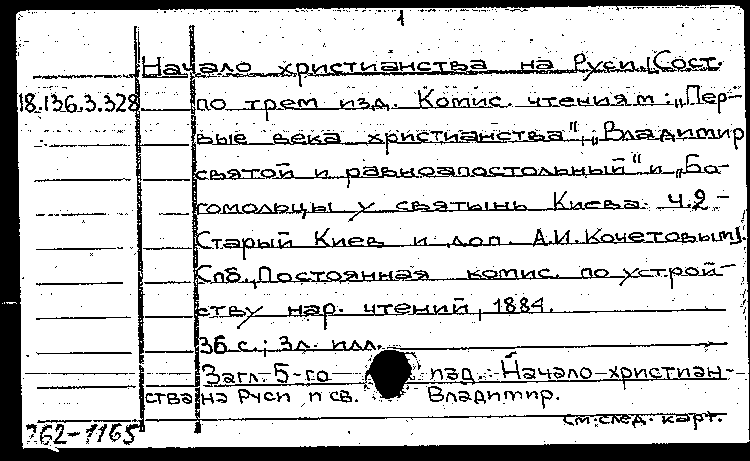 1
Начало христианства на Руси. [Сост.
18.136.3.328 по трем изд. Комис. чтениям: „Пер-
вые века христианства", „Владимир
святой и равноапостольный" и „Бо-
гомольцы у святынь Киева. Ч.2 -
Старый Киев и доп. А.И. Кочетовым].
Спб., Постоянная комис. по устрой-
ству нар. чтений, 1884.
36 с.; 3л. илл.
Загл. 5-го изд.: Начало христиан-
ства на Руси и св. Владимир.
см. след. карт.
762-1165